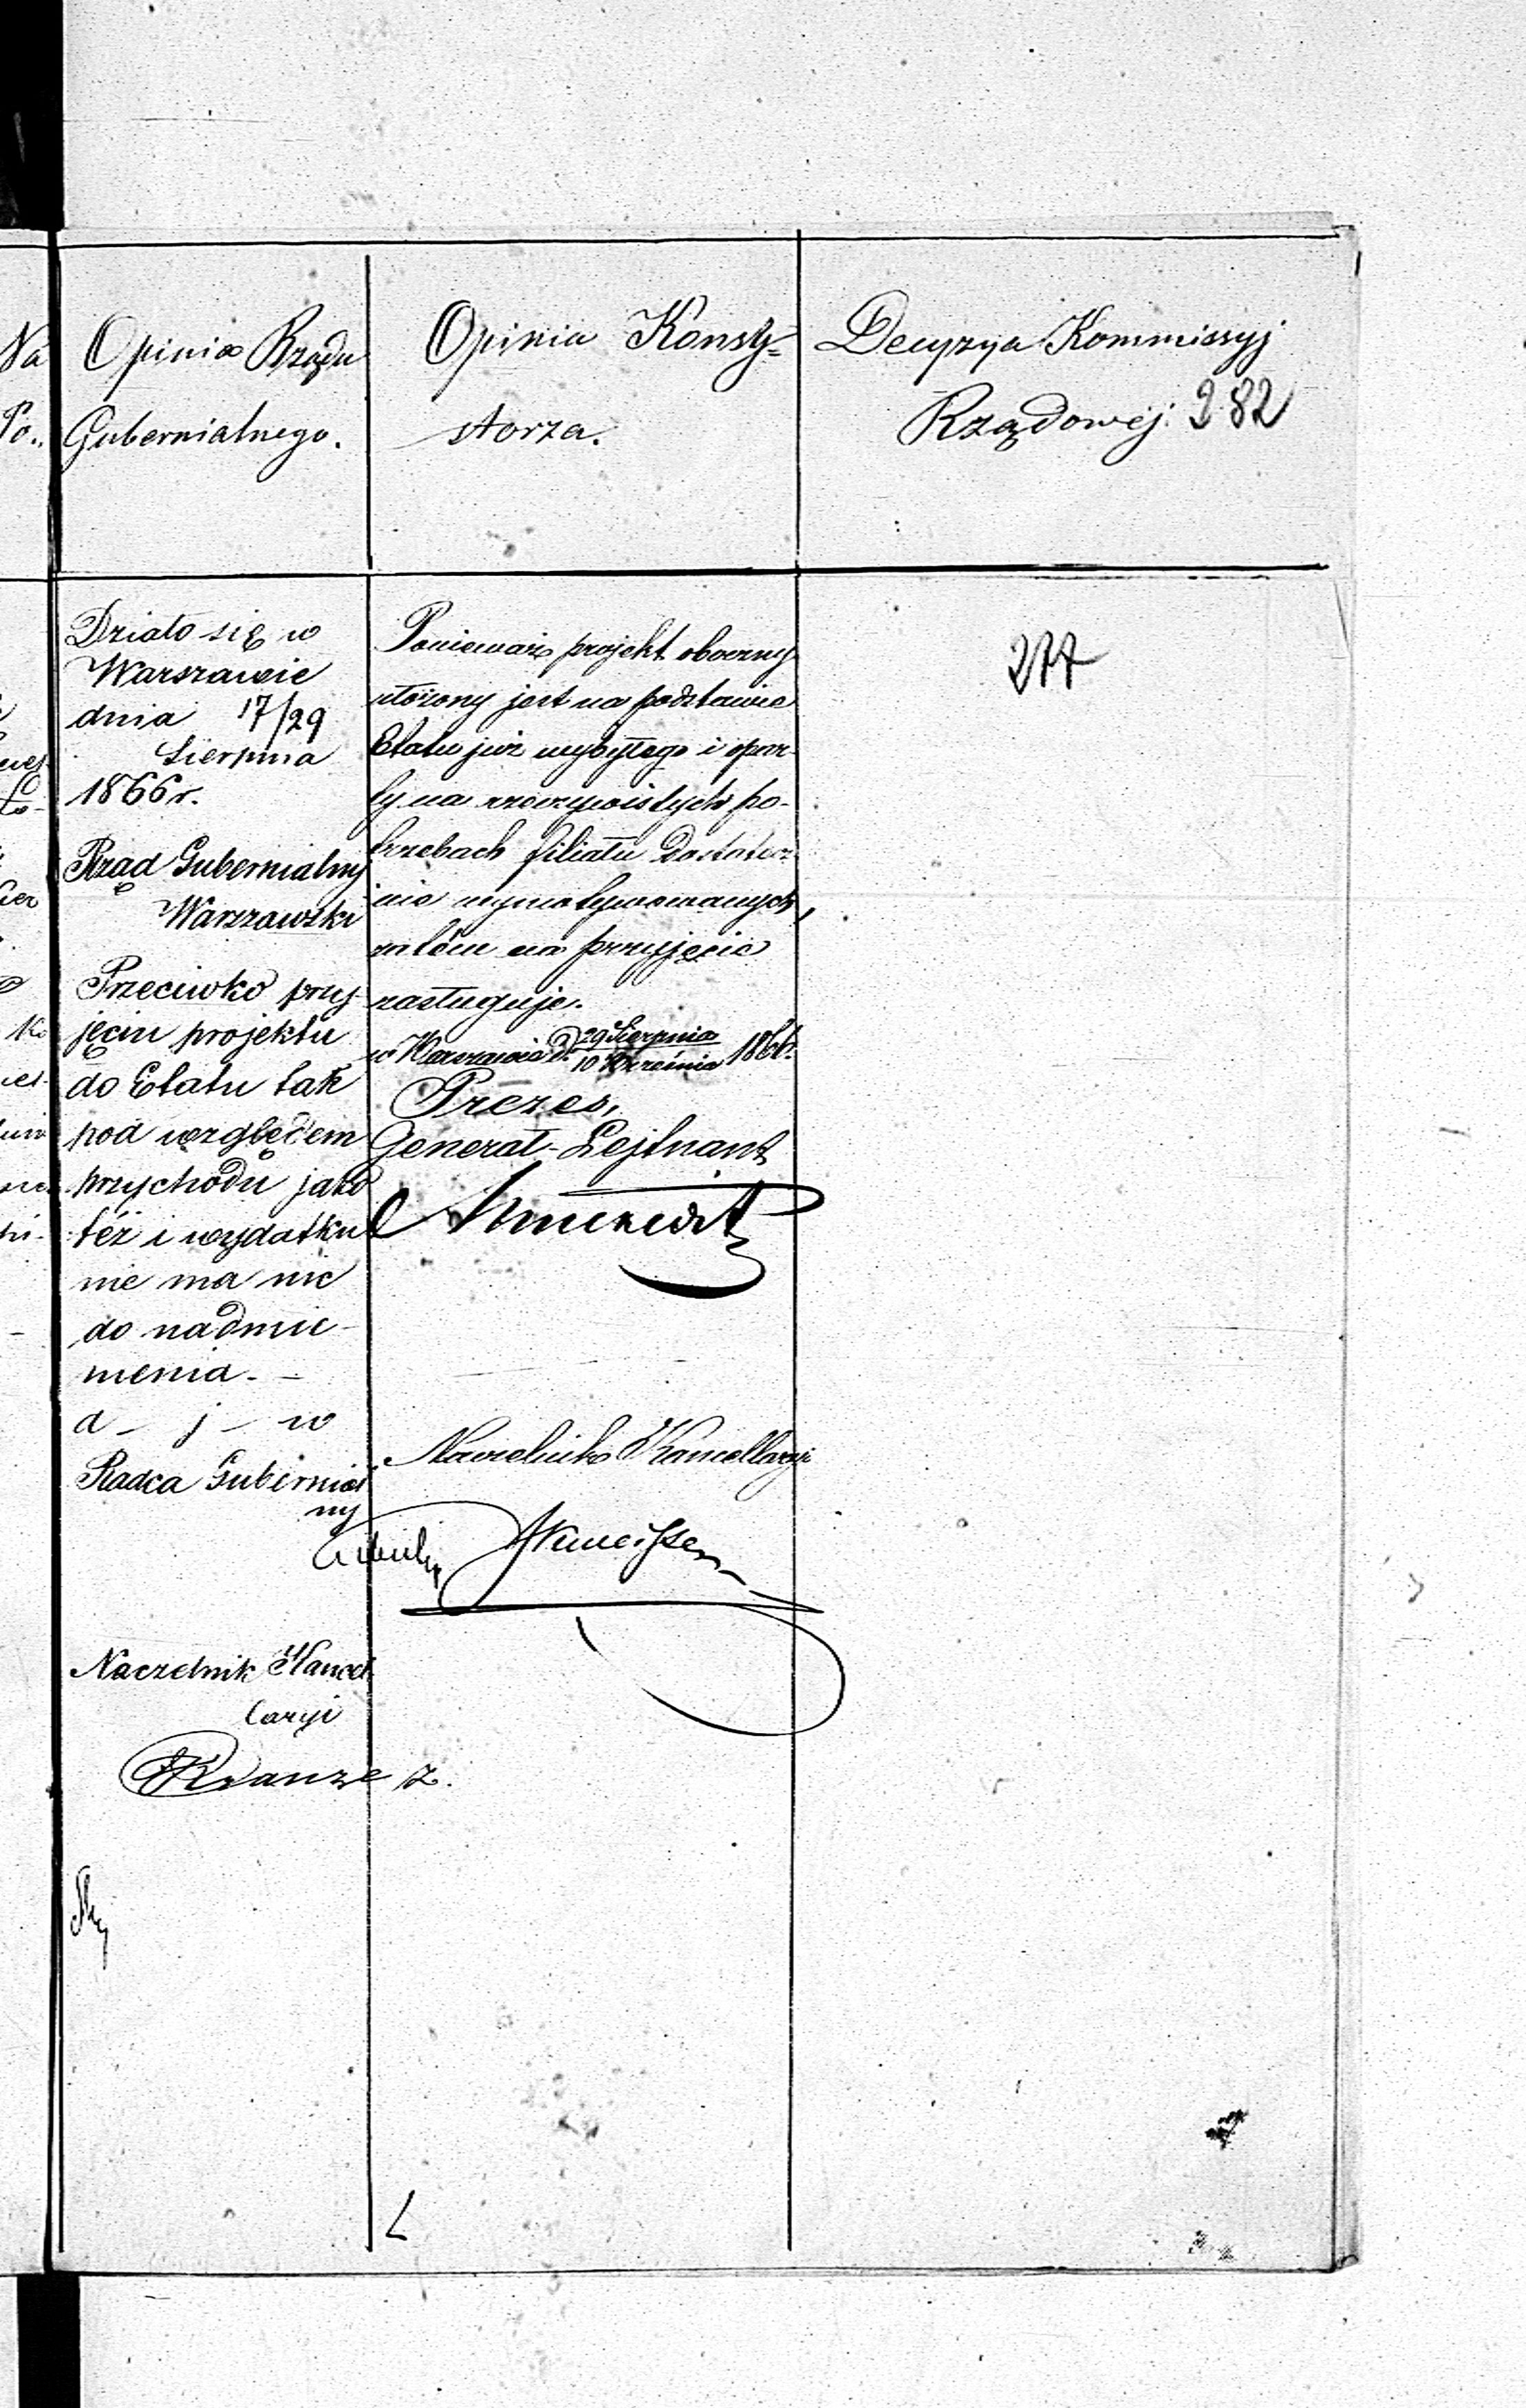 Opinia Rządu
Gubernialnego.
Opinia Konsy=
storza.
Decyzya Kommissyj
Rządowéj. 282
277
Działo się w
Warszawie
dnia 17/29
Sierpnia
1866 r.
Rząd Gubernialny
Warszawski
Przeciwko przy-
jęciu projektu
do Etatu tak
pod względem
przychodu jako
też i wydatku
nie ma nic
do nadmie-
nienia. -
a - j - w
Radca Gubernial
ny
Naczelnik Kancel
laryi
Ponieważ projekt oboczny
ułożony jest na podstawie
Etatu już wybytego i opar-
ty na rzeczywistych po-
trzebach filiału dostatecz-
nie wymotywowanych,
zatém na przyjęcie
zasługuje.
w Warszawie d. 29 Sierpnia / 10 Września 1866.
Prezes,
Generał-Lejtnant
Naczelnik Kancellaryi